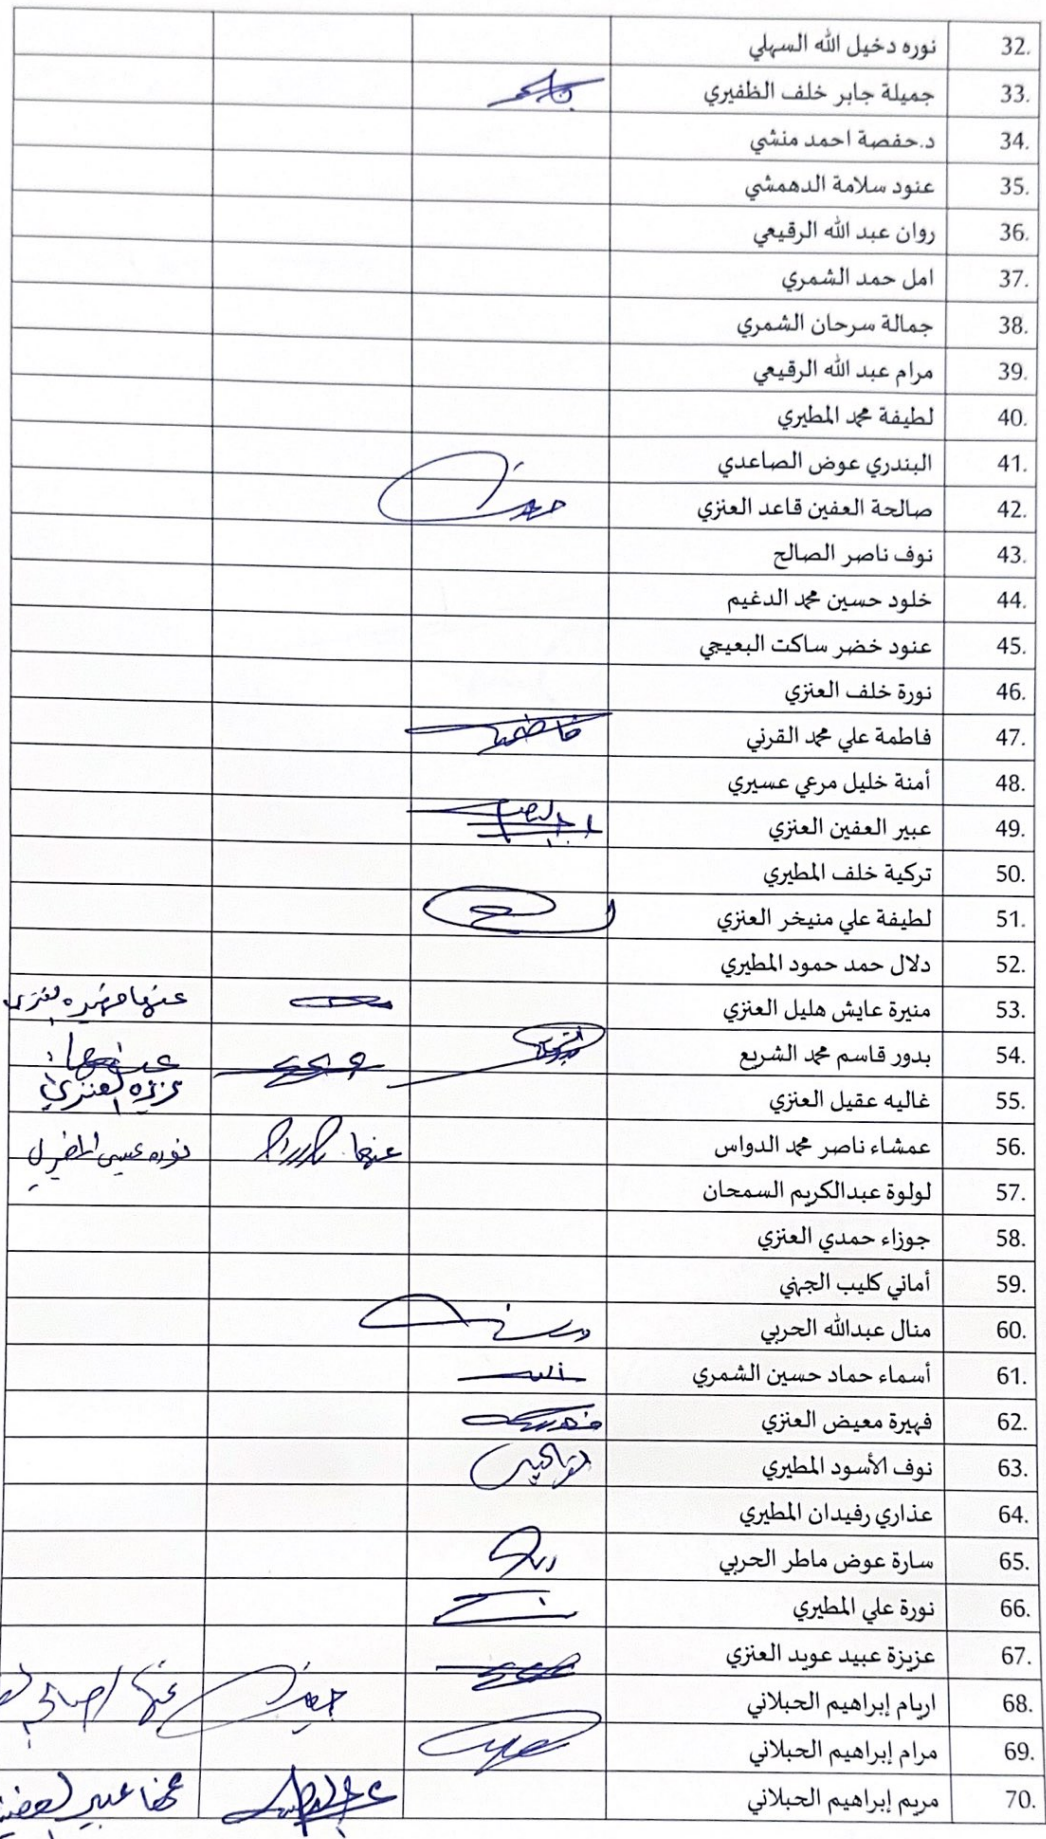 32. نوره دخيل الله السهلي
33. جميلة جابر خلف الظفيري
34. د.حفصة احمد منشي
35. عنود سلامة الدهمشي
36. روان عبد الله الرقيعي
37. امل حمد الشمري
38. جمالة سرحان الشمري
39. مرام عبد الله الرقيعي
40. لطيفة محمد المطيري
41. البندري عوض الصاعدي
42. صالحة العفين قاعد العنزي
43. نوف ناصر الصالح
44. خلود حسين محمد الدغيم
45. عنود خضر ساكت البعيجي
46. نورة خلف العنزي
47. فاطمة علي محمد القرني فاطمة
48. أمنة خليل مرعي عسيري
49. عبير العفين العنزي
50. تركية خلف المطيري
51. لطيفة علي منيخر العنزي
52. دلال حمد حمود المطيري
53. منيرة عايش هليل العنزي عنها فهيره لعنزي
54. بدور قاسم محمد الشريع عنها:
عزيزه العنزي
55. غاليه عقيل العنزي
56. عمشاء ناصر محمد الدواس عنها نوره عيسى
57. لولوة عبدالكريم السمحان
58. جوزاء حمدي العنزي
59. أماني كليب الجهني
60. منال عبدالله الحربي
61. أسماء حماد حسين الشمري
62. فهيرة معيض العنزي
63. نوف الأسود المطيري
64. عذاري رفيدان المطيري
65. سارة عوض ماطر الحربي
66. نورة علي المطيري
67. عزيزة عبيد عويد العنزي
68. اريام إبراهيم الحبلاني عنها
69. مرام إبراهيم الحبلاني
70. مريم إبراهيم الحبلاني عنها عبير لعفين